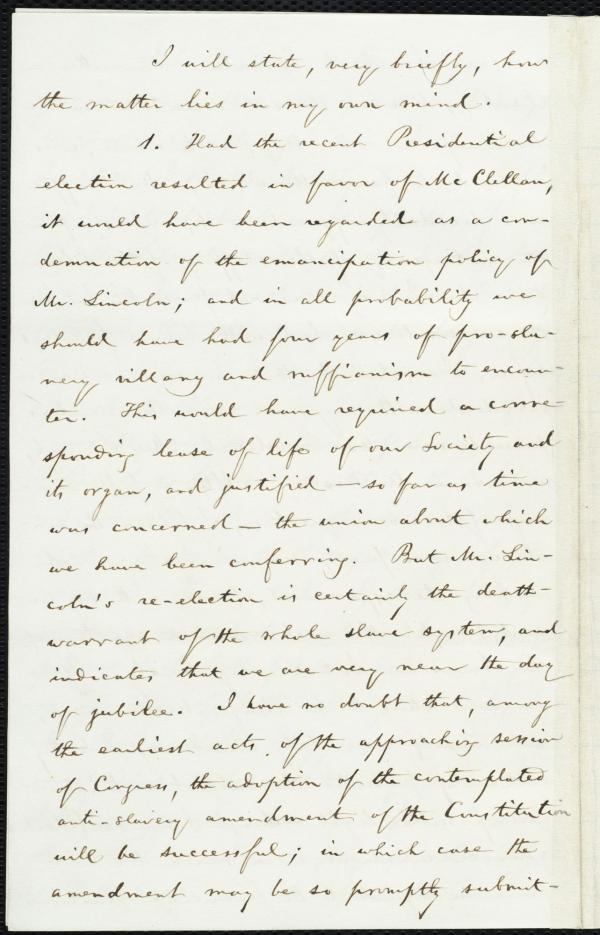 I will state, very briefly, how
the matter lies in my own mind.
1. Had the recent Presidential
election resulted in favor of McClellan,
it would have been regarded as a con-
demnation of the emancipation policy of
Mr. Lincoln; and in all probability we
should have had four years of pro-sla-
very villany and ruffianism to encoun-
ter. This would have required a corre-
sponding lease of life of our Society and
its organ, and justified — so far as time
was concerned — the union about which
we have been conferring. But Mr. Lin-
coln's re-election is certainly the death-
warrant of the whole slave system, and
indicates that we are very near the day
of jubilee. I have no doubt that, among
the earliest acts of the approaching session
of Congress, the adoption of the contemplated
anti-slavery amendment of the Constitution
will be successful; in which case the
amendment may be so promptly submit-